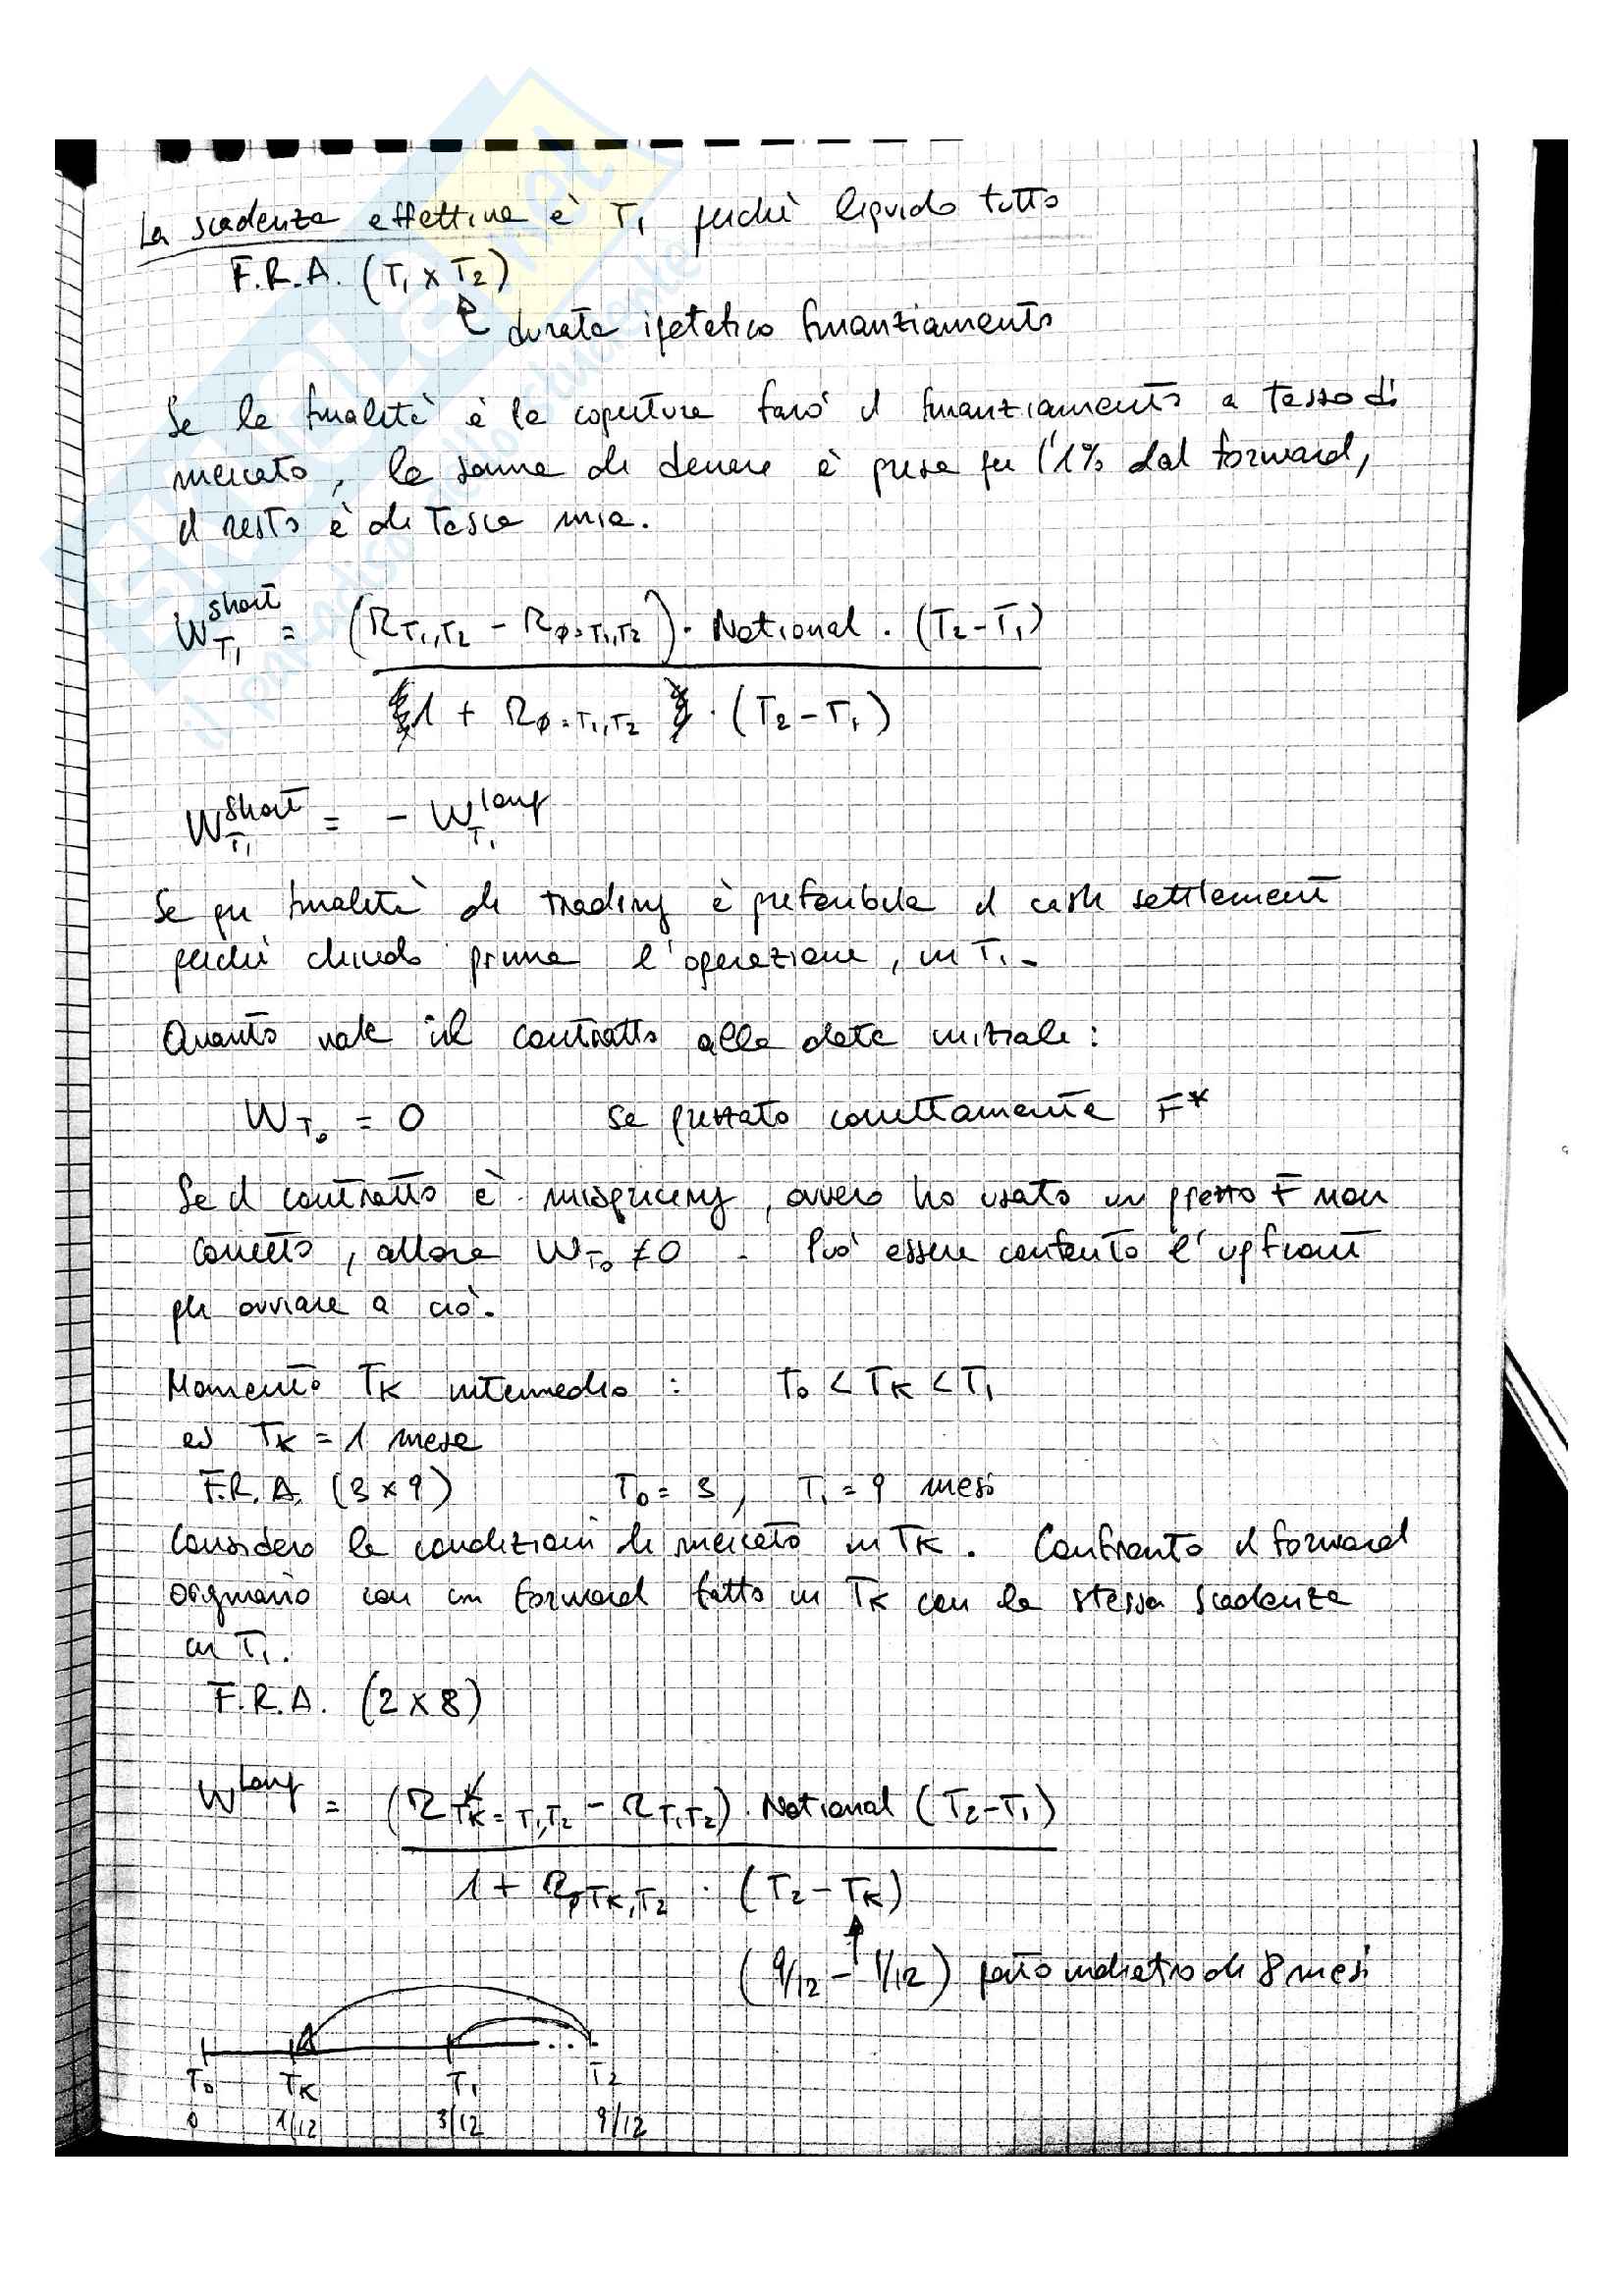 La scadenza effettiva è T₁ perché liquido tutto
F.R.A. (T₁ x T₂)
durata ipotetico finanziamento
Se la finalità è la copertura farò il finanziamento a tasso di
mercato, la somma di denaro è presa per l'1% dal forward,
il resto è di tasca mia.
W_{T₁}^{short} = (R_{T₁,T₂} - R_{ø=T₁,T₂}) · Notional · (T₂-T₁)
1 + R_{ø=T₁,T₂} · (T₂-T₁)
W_{T₁}^{short} = - W_{T₁}^{long}
Se per finalità di trading è preferibile il cash settlement
perché chiudo prima l'operazione, in T₁.
Quanto vale il contratto alla data iniziale:
W_{T₀} = 0 se prezzato correttamente F*
Se il contratto è mispricing, ovvero ho usato un prezzo F non
corretto, allora W_{T₀} ≠ 0. Può essere contento l'upfront
per ovviare a ciò.
Momento T_K intermedio: T₀ < T_K < T₁
es T_K = 1 mese
F.R.A. (3 x 9) T₀ = 3, T₁ = 9 mesi
Considero le condizioni di mercato in T_K. Confronto il forward
originario con un forward fatto in T_K con la stessa scadenza
in T₁.
F.R.A. (2 x 8)
W^{Long} = (R_{T_K=T₁,T₂} - R_{T₁,T₂}) · Notional (T₂-T₁)
1 + R_{øT_K,T₂} · (T₂-T_K)
(9/12 - 1/12) porto indietro di 8 mesi
T₀ T_K T₁ T₂
0 1/12 3/12 9/12